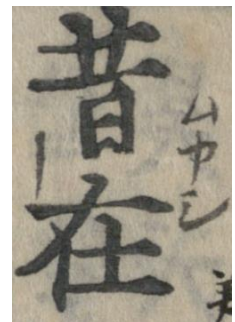 昔在
ムカシ